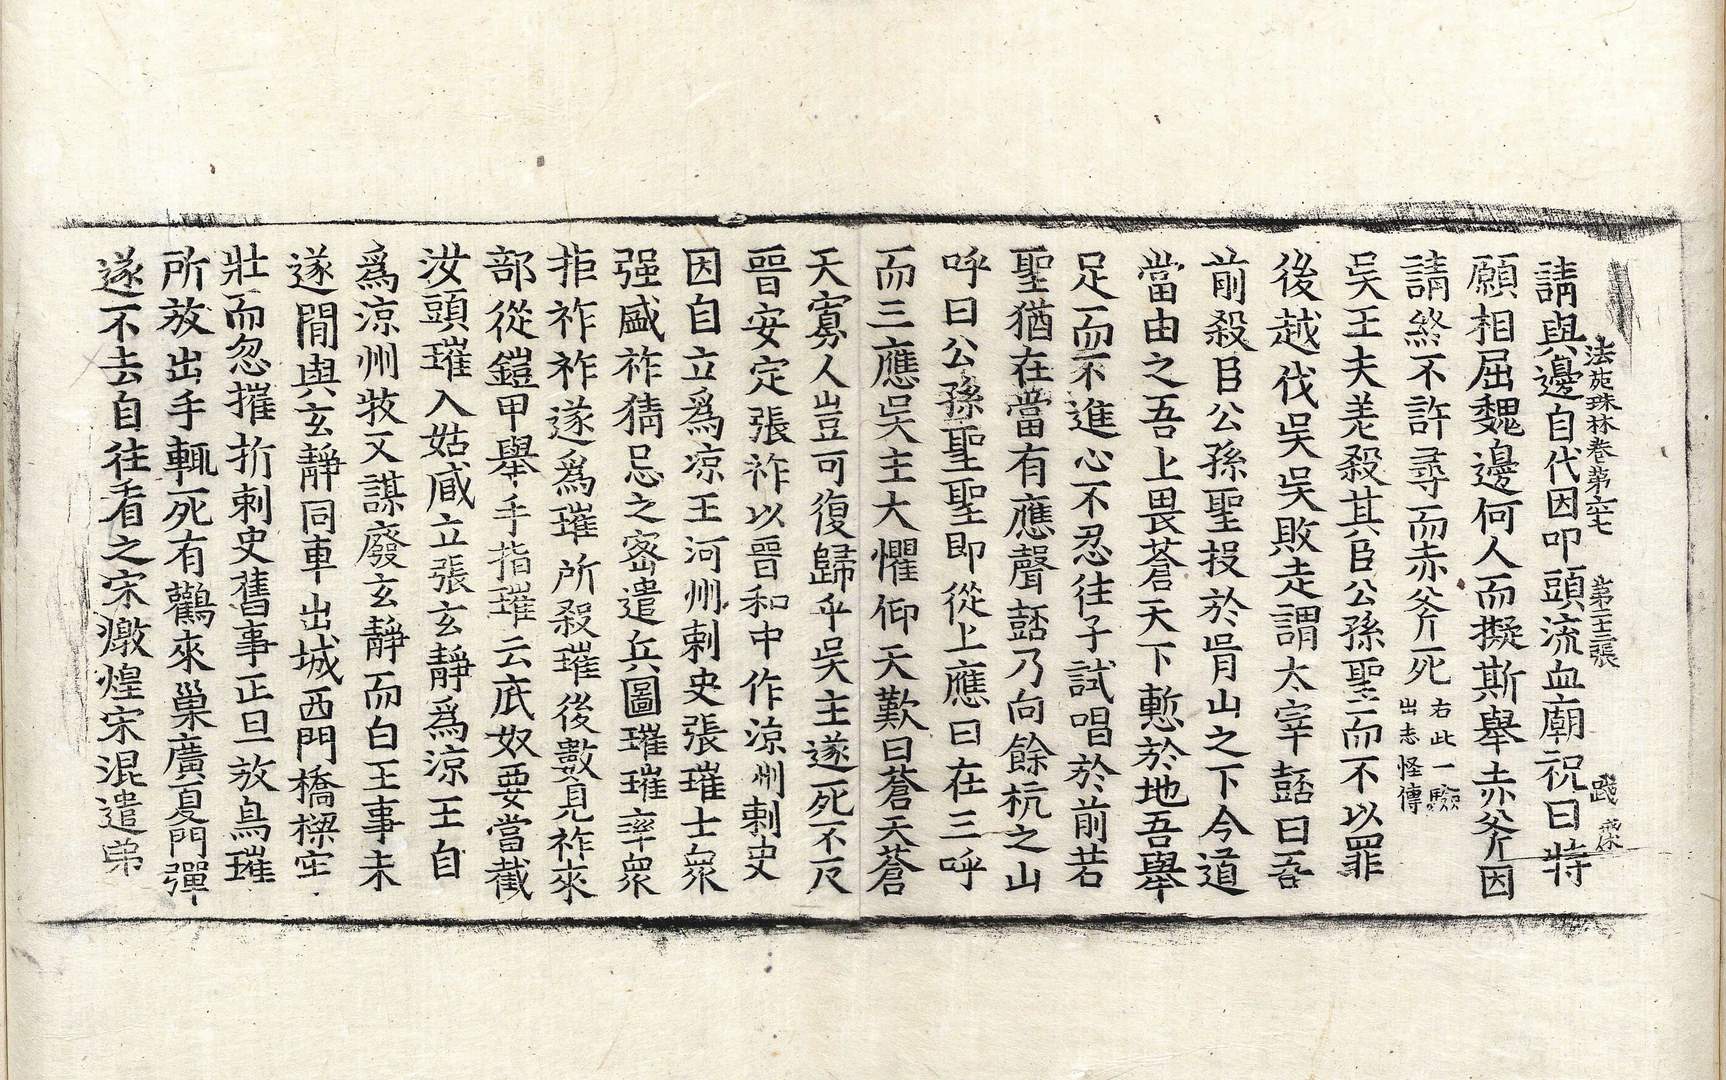 法苑珠林卷第六七 第二王張 踐
請與邊自代因叩頭流血廟祝曰特
願相屈魏邊何人而擬斯舉赤斧因
請終不許尋而赤斧死右此一驗出志怪傳
吳王夫差殺其臣公孫聖而不以罪
後越伐吳吳敗走謂太宰嚭曰吾
前殺臣公孫聖投於胥山之下今道
當由之吾上畏蒼天下慙於地吾舉
足而不進心不忍往子試唱於前若
聖猶在當有應聲嚭乃向餘杭之山
呼曰公孫聖聖即從上應曰在三呼
而三應吳主大懼仰天歎曰蒼天蒼
天寡人豈可復歸乎吳主遂死不反
晉安定張祚以晉和中作涼州刺史
因自立爲涼王河州刺史張璀士衆
强盛祚猜忌之密遣兵圖璀璀率衆
拒祚祚遂爲璀所殺璀後數見祚來
部從鎧甲舉手指璀云底奴要當截
汝頭璀入姑臧立張玄靜爲涼王自
爲涼州牧又謀廢玄靜而白王事未
遂閒與玄靜同車出城西門橋樑牢
壯而忽摧折刺史舊事正旦放鳥璀
所放出手輒死有鸛來巢廣夏門彈
遂不去自往看之宋燉煌宋混遣弟